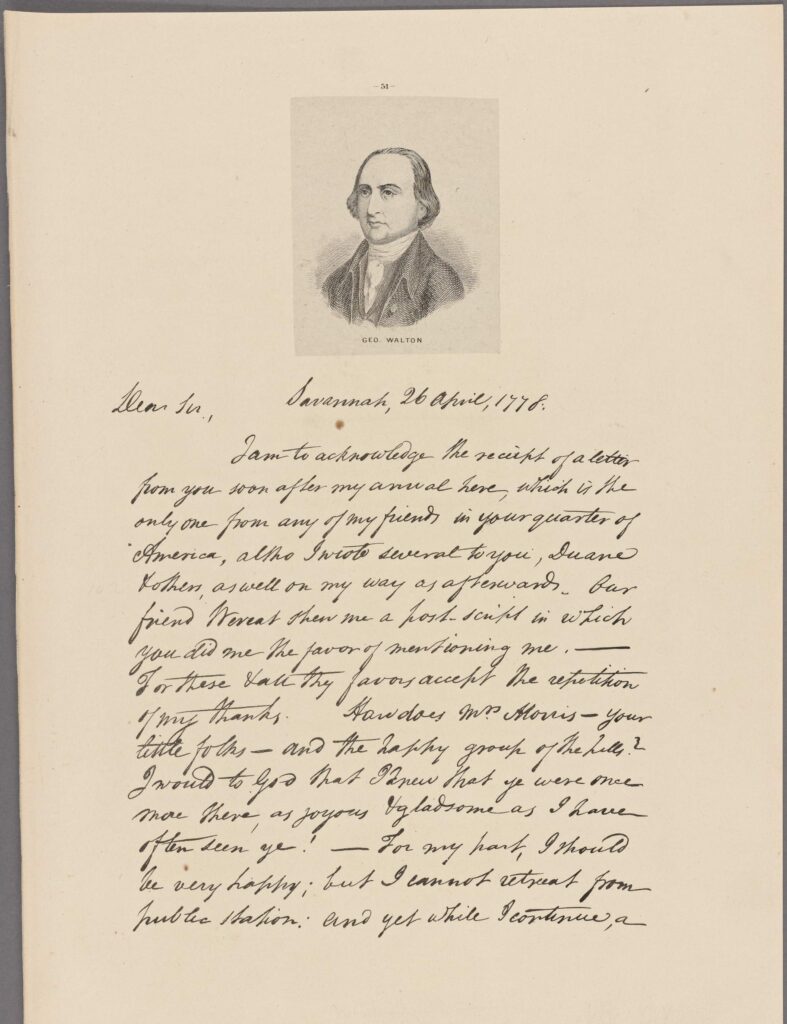 - 51 -
GEO. WALTON
Dear Sir, Savannah, 26 April, 1778.
I am to acknowledge the reciept of a letter
from you soon after my arrival here, which is the
only one from any of my friends in your quarter of
America, altho I wrote several to you, Duane
& others, as well on my way as afterwards. Our
friend Wereat shew me a post-script in which
you did me the favor of mentioning me. —
For these & all thy favors accept the repetition
of my thanks. How does Mrs Morris — your
little folks — and the happy group of the hills?
I would to God that I knew that ye were once
more there, as joyous & gladsome as I have
often seen ye! — For my part, I should
be very happy; but I cannot retreat from
public station: and yet while I continue, a